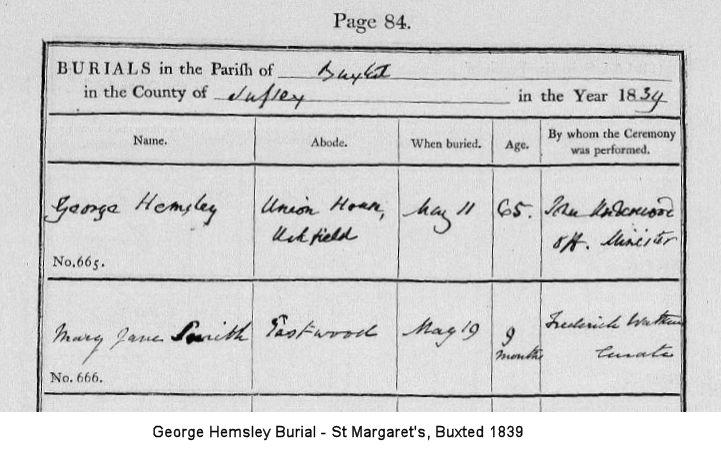 Page 84.
BURIALS in the Parish of Buxted
in the County of Sussex in the Year 1839
Name. Abode. When buried. Age. By whom the Ceremony was performed.
George Hemsley Union House, May 11 65. John Underwood
Uckfield Off. Minister
No. 665.
Mary Jane Smith Eastwood May 19 9 months Frederick
Curate
No. 666.
George Hemsley Burial - St Margaret's, Buxted 1839